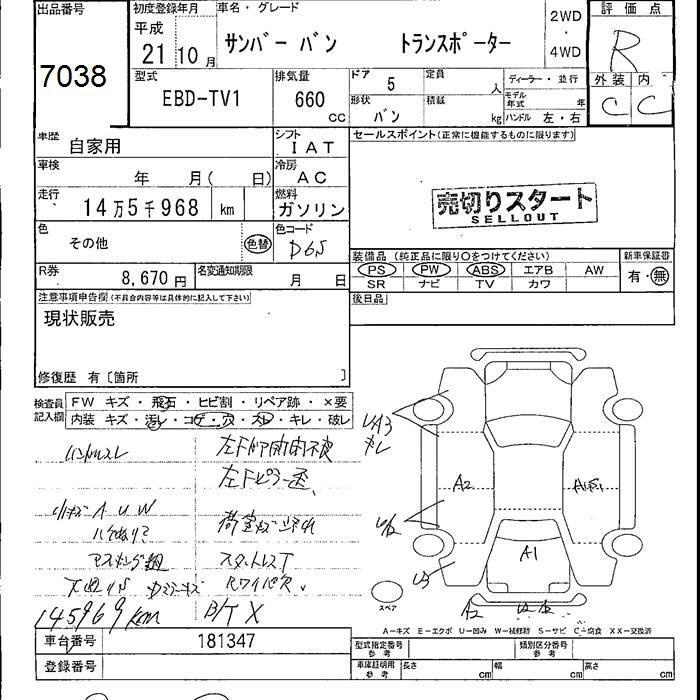 出品番号
7038
初度登録年月
平成
21 10月
車名・グレード
サンバー バン トランスポーター
2WD
・
4WD
評価点
R
外装 内
C C
型式
EBD-TV1
排気量
660
CC
ドア 5
定員 人
形状
バン
積載 kg
ディーラー・並行
モデル年式 年
ハンドル 左・右
車歴
自家用
シフト
IAT
車検
年 月( 日)
冷房
AC
走行
14万5千968 km
燃料
ガソリン
色
その他
色替
色コード
D6S
R券
8,670円
名変通知期限
月 日
セールスポイント(正常に機能するものに限ります)
売切りスタート
SELLOUT
装備品(純正品に限り○をつけてください)
新車保証書
PS PW ABS エアB AW
SR ナビ TV カワ
有・無
後日品
注意事項申告欄(不具合内容等は具体的に記入して下さい)
現状販売
修復歴 有〔箇所 〕
検査員記入欄
FW キズ・飛石・ヒビ割・リペア跡・×要
内装 キズ・汚レ・コゲ・穴・スレ・キレ・破レ
ハンドルスレ
左Fドア開閉不良
左Fピラー歪
小キズ A U W
スタットレスT
Rワイパ欠
145969km
B/T X
U3
A2
A1S1
A1
U3
A2
スペア
A-キズ E-エクボ U-凹み W-補修跡 S-サビ C-腐食 XX-交換済
車台番号
181347
登録番号
型式指定番号
参考
類別区分番号
参考
車庫証明用
参考
長さ cm
幅 cm
高さ cm